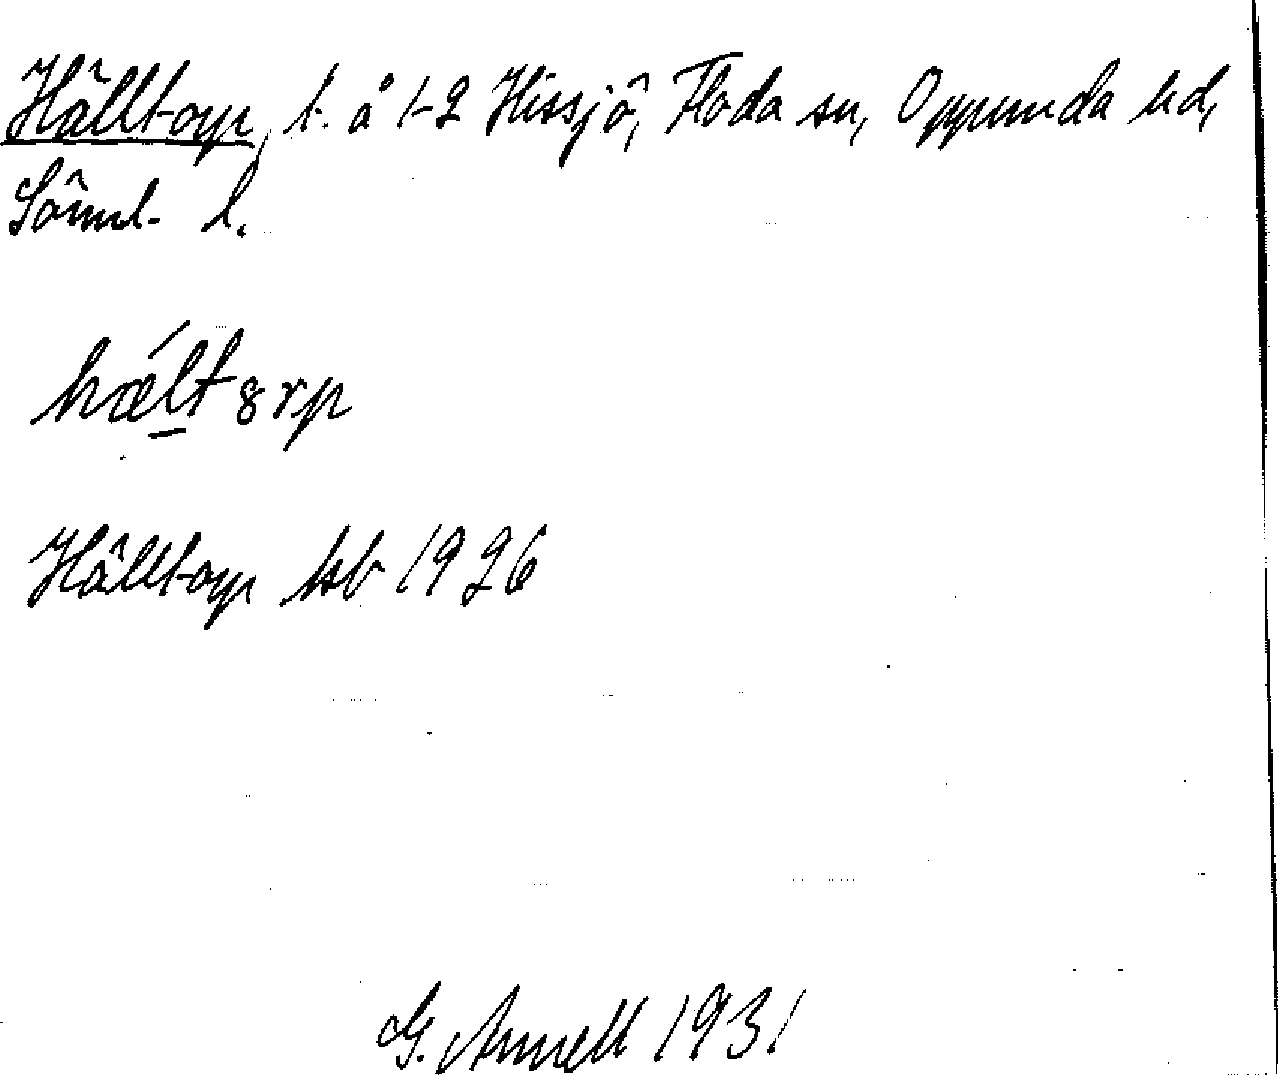 Hälltorp, t. å 1-2 Hissjö, Floda sn, Oppunda hd,
Sörml. l.
hæ´lt8rp
Hälltorp kb 1926
G. Arnell 1931